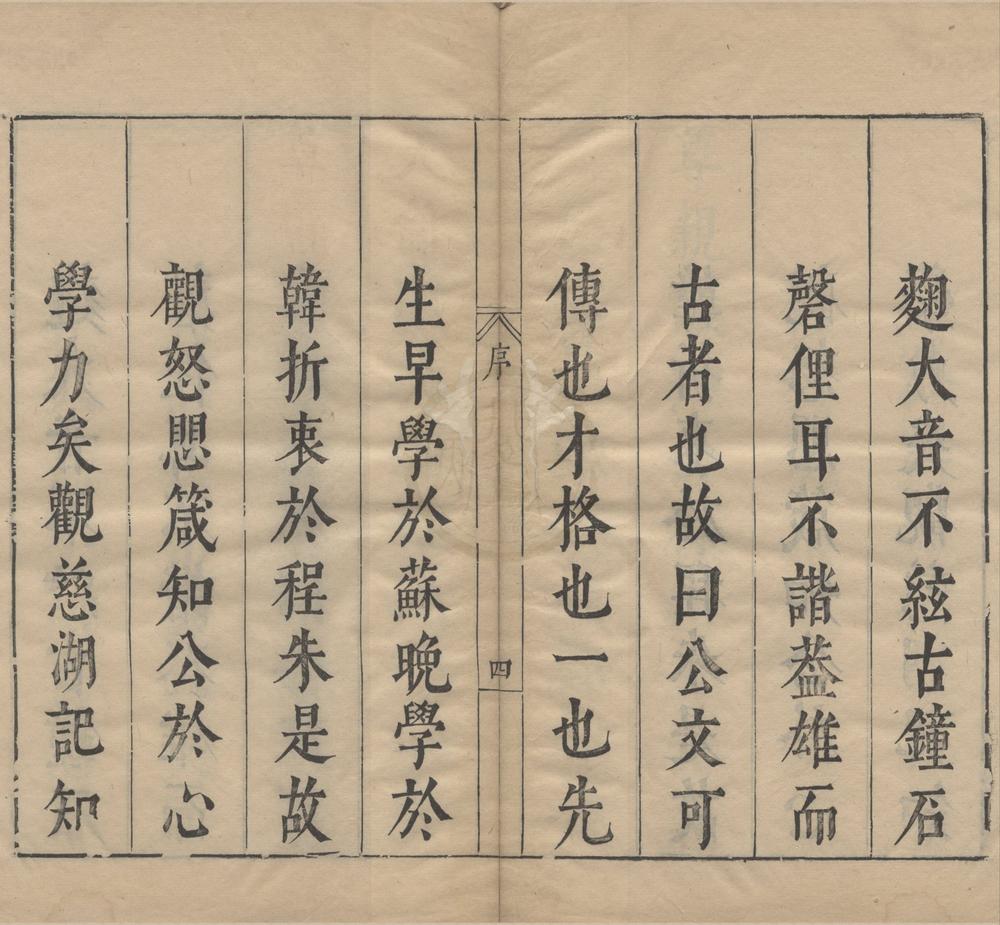 麴大音不絃古鐘石
磬俚耳不諧葢雄而
古者也故曰公文可
傳也才格也一也先
序 四
生早學於蘇晚學於
韓折衷於程朱是故
觀怒愳箴知公於心
學力矣觀慈湖記知